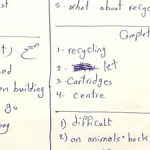 st
5. what about recyc
Complet
t)
1- recycling
od
2. let
en building
3- Cartridges
go
4- centre
1) difficult
2) on animals' back